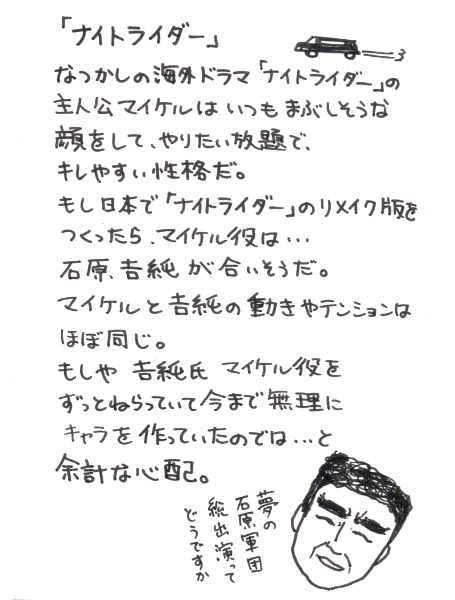 「ナイトライダー」
なつかしの海外ドラマ「ナイトライダー」の
主人公マイケルはいつもまぶしそうな
顔をして、やりたい放題で、
キレやすい性格だ。
もし日本で「ナイトライダー」のリメイク版を
つくったら、マイケル役は…
石原、吉純が合いそうだ。
マイケルと吉純の動きやテンションは
ほぼ同じ。
もしや 吉純氏 マイケル役を
ずっとねらっていて今まで無理に
キャラを作っていたのでは…と
余計な心配。
夢の
石原軍団
総出演って
どうですか